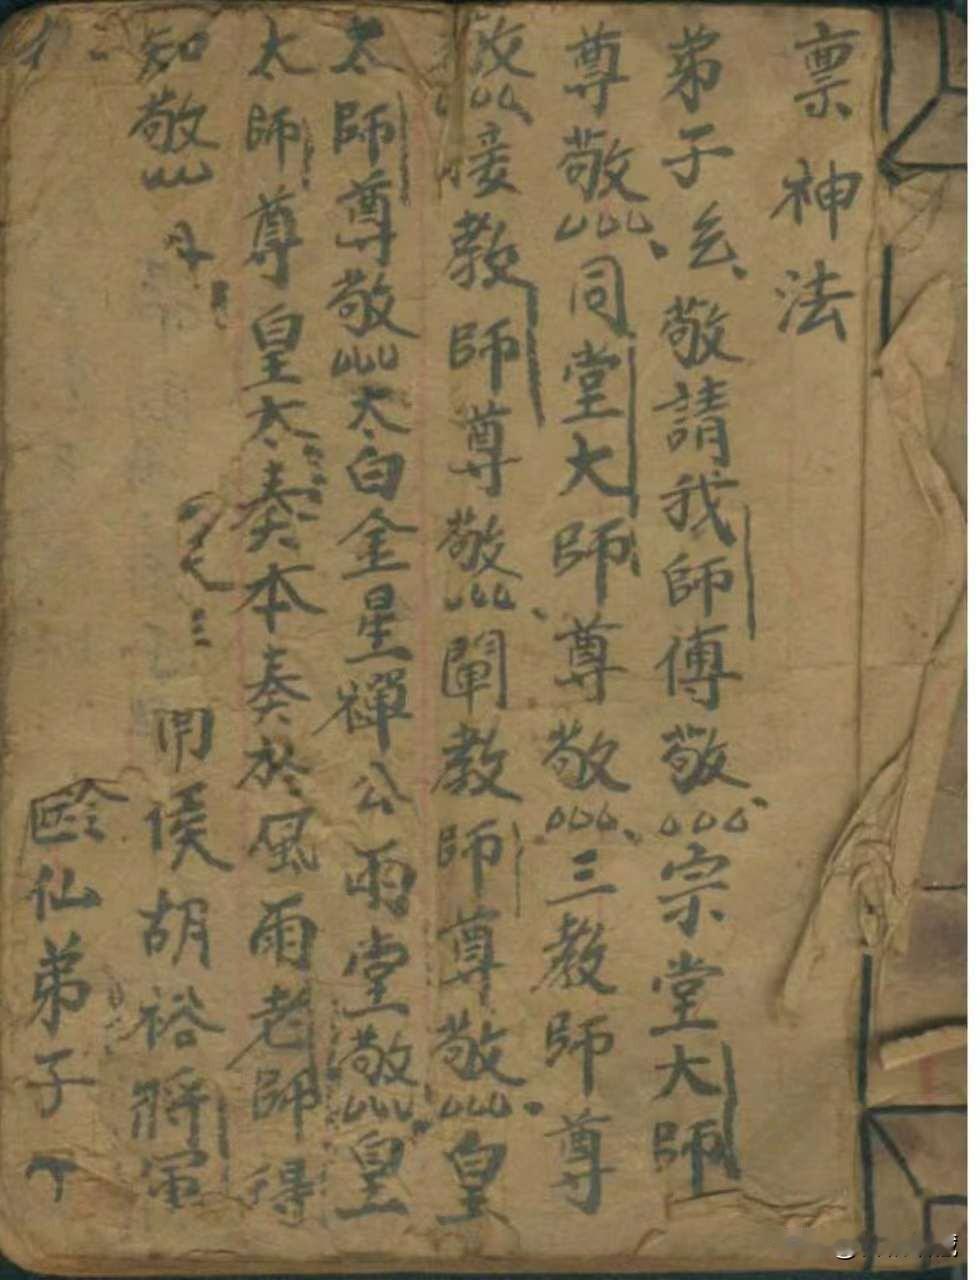 禀神法
弟子乞、敬請我師傅敬宗堂大師
尊敬同堂大師尊敬三教師尊
敬接教師尊敬闡教師尊敬皇
太師尊敬太白金星禪公雨堂敬皇
太師尊皇太奏本奏於風雨老師得
知敬
用侯胡裕將軍
仙弟子